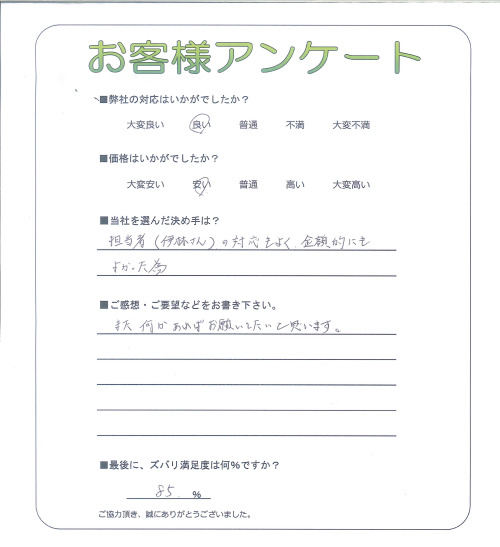 お客様アンケート
■弊社の対応はいかがでしたか？
大変良い 良い 普通 不満 大変不満
■価格はいかがでしたか？
大変安い 安い 普通 高い 大変高い
■当社を選んだ決め手は？
担当者(伊林さん)の対応もよく、金額的にも
よかった為
■ご感想・ご要望などをお書き下さい。
また何かあればお願いしたいと思います。
■最後に、ズバリ満足度は何％ですか？
85 %
ご協力頂き、誠にありがとうございました。